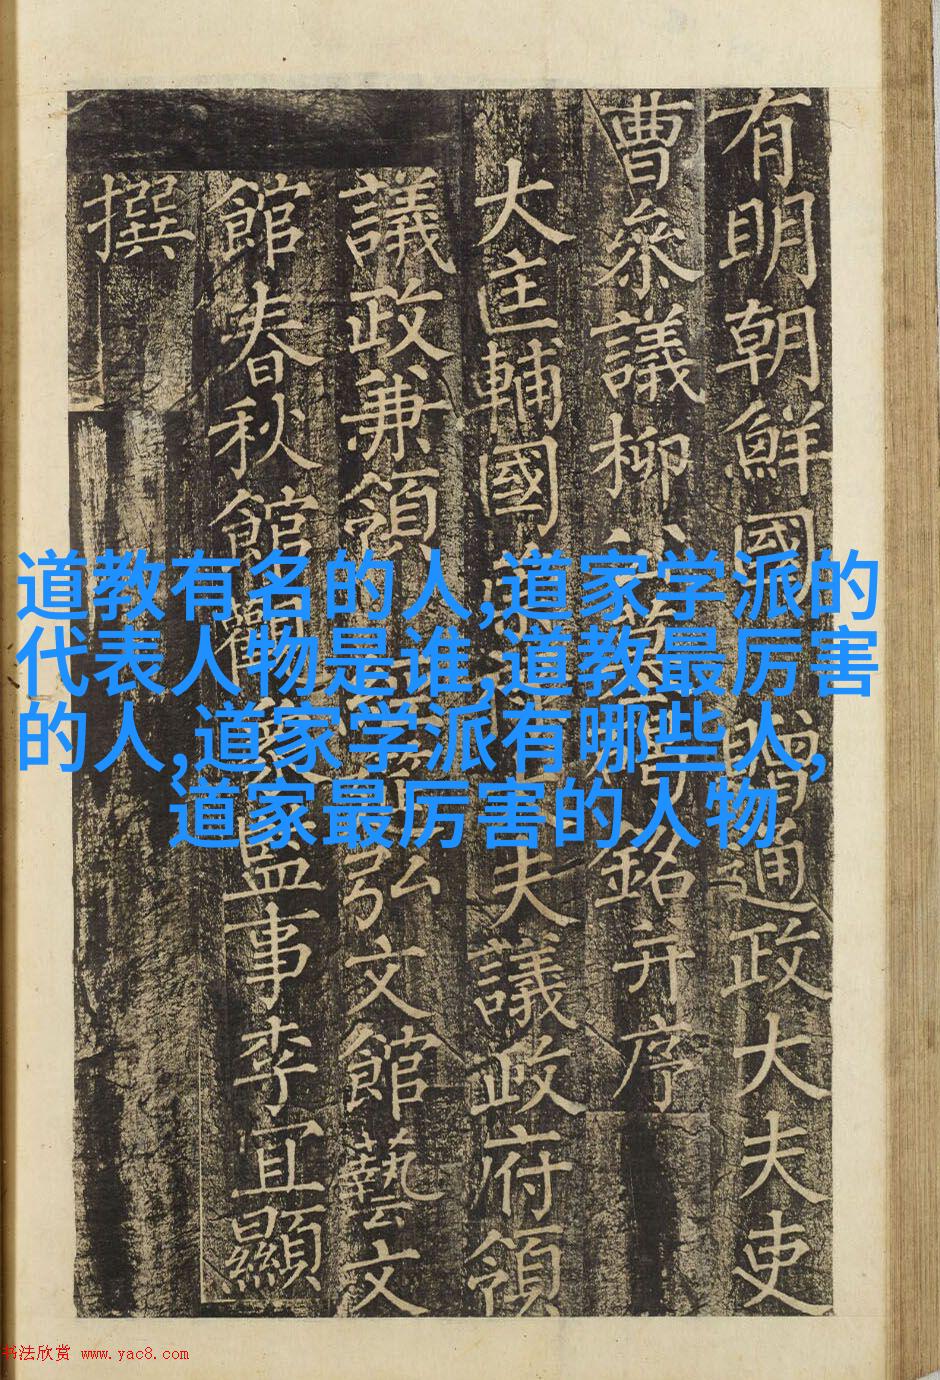 有明朝鮮國贈通政大夫吏
曹叅議柳公墓碣銘并序
大匡輔國崇大夫議政府領
議政兼領弘文館藝文
館春秋館觀象監事李宜顯
撰
道教有名的人,道家学派的
代表人物是谁,道教最厉害
的人,道家学派有哪些人,
道家最厉害的人物
书法欣赏 www.yac8.com